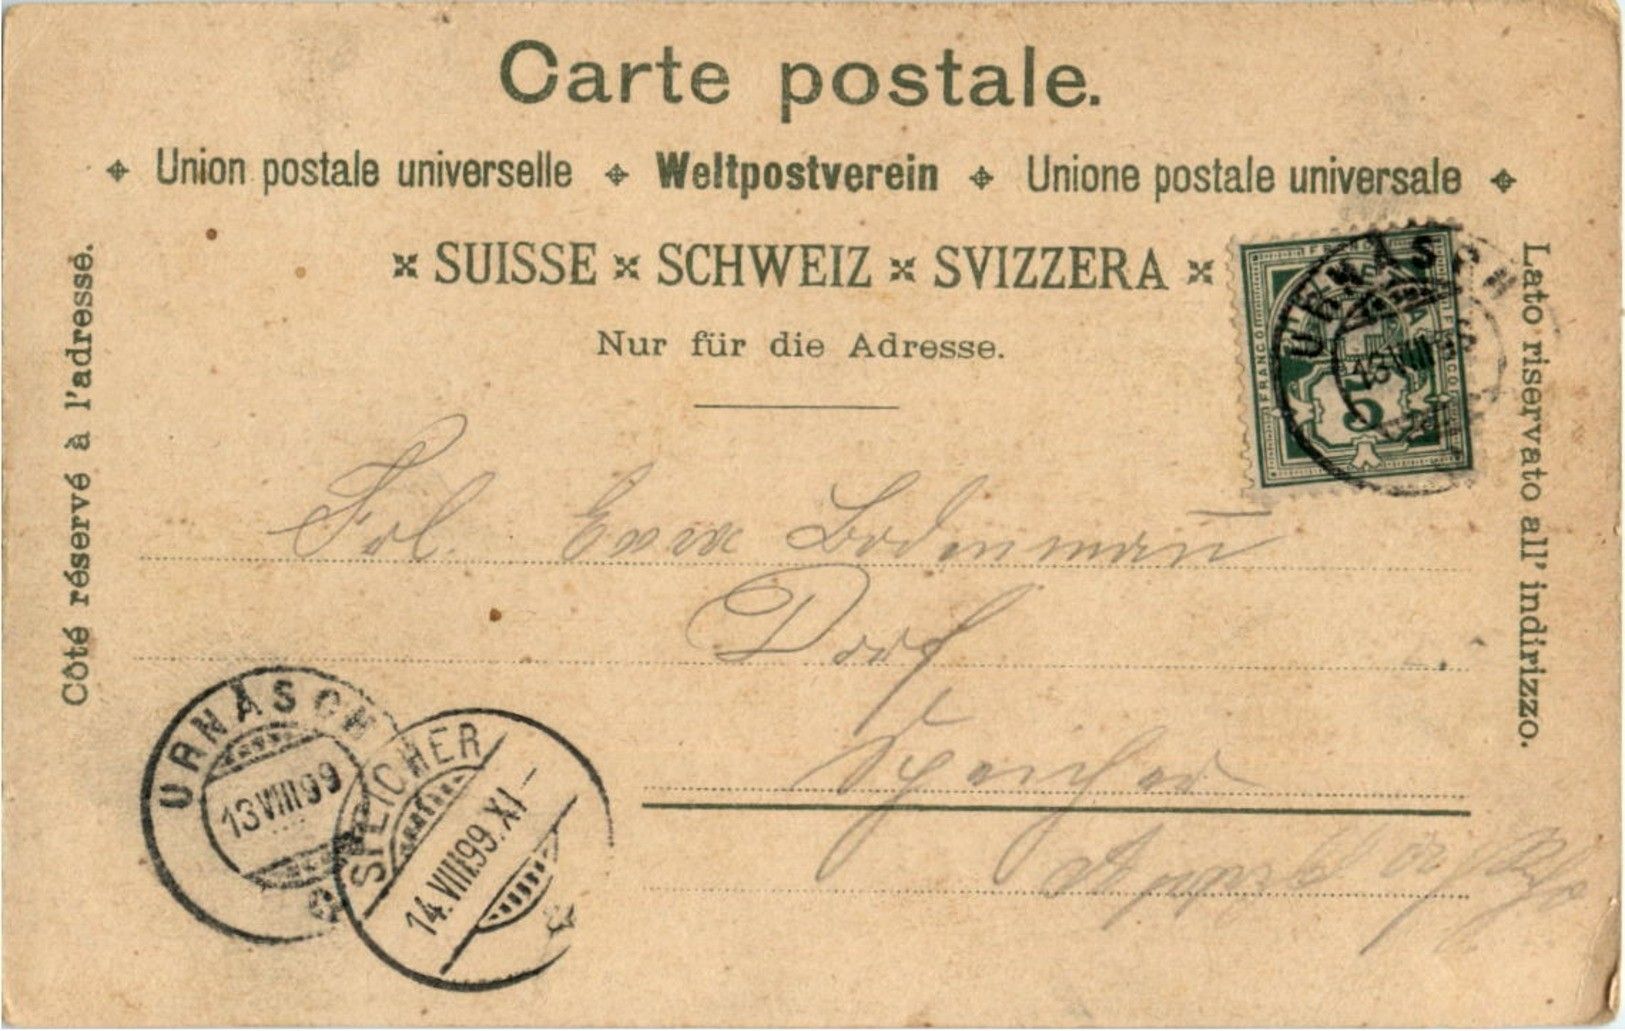 Carte postale.
Union postale universelle Weltpostverein Unione postale universale
SUISSE SCHWEIZ SVIZZERA
Nur für die Adresse.
Côté réservé à l'adresse.
Lato riservato all' indirizzo.
FRANCO FRANCO
5
URNÄSCH
13 VIII
Frl. Emma Bodenmann
Dorf
Speicher
URNÄSCH
13 VIII 99
SPEICHER
14. VIII 99. XI –